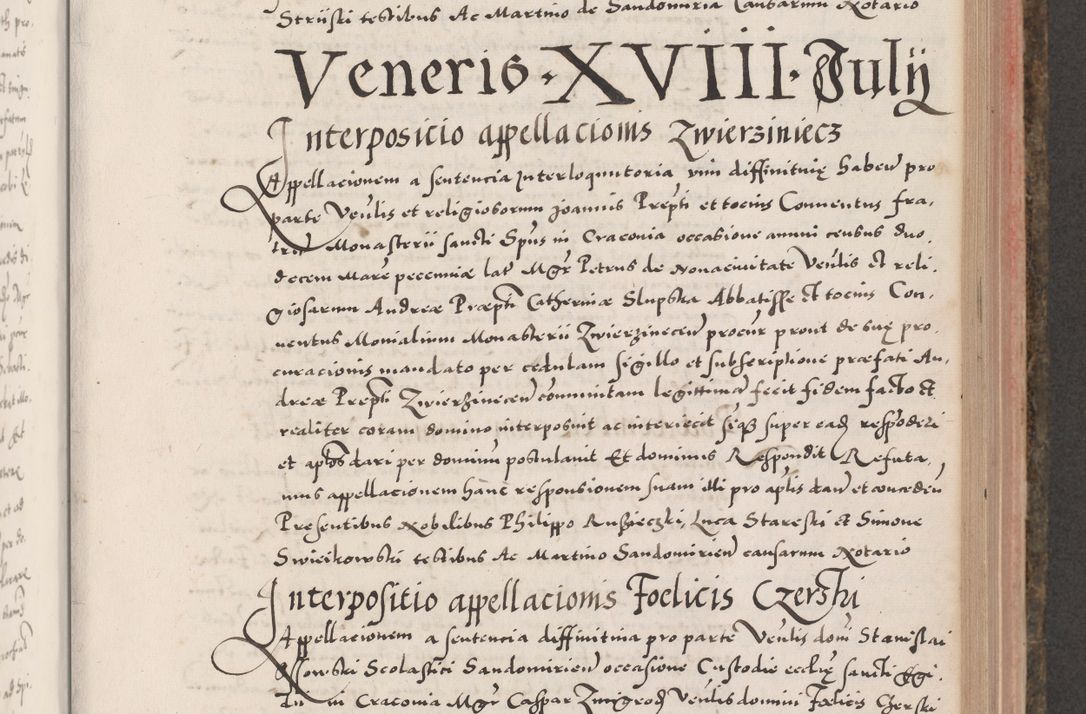 Striiski testibus Ac Martino de Sandomiria Causarum Notario
Veneris · XVIII · Julÿ
Interposicio appellacionis Zwierziniecz
Appellacionem a sentencia interloquutoria vim diffinitiuę haben̄ pro
parte Veńlis et religiosorum Joannis Prep̄ti et tocius Conuentus fra,
trū Monasterii sancti Sp̄us in Craconia occasione annui census duo,
decem Marc̄ pecuniæ lat̄ Mgr̄ Petrus de Nouaciuitate Veńlis et reli,
giosarum Andreæ Præp̄ti Catherinæ Slupska Abbatisse et tocius Con,
uentus Monialium Monasterii Zwierzinecen̄ procur̄ prout de suę pro,
curacionis mandato per cedulam sigillo et subscriptione præfati An,
dreæ Prep̄ti Zwierzinecen̄ com̄unitam legittimā fecit fidem facto et
realiter coram domino interposuit ac interiecit seq̄ super ead̄ respōderi
et aptōs dari per dominum postulauit Et dominus Respondit Refuta,
mus appellacionem hanc responsionem suam illi pro aptis dan̄ et conceden̄
Presentibus Nobilibus Philippo Rusieczki, Luca Stareski et Simone
Swieikowski testibus Ac Martino Sandomirien̄ causarum Notario
Interpositio appellacionis Foelicis Czerski
Appellacionem a sentencia diffinitiua pro parte Veńlis dom̄i Stanislai
Scolastici Sandomirien̄ occasione Custodie eccl̄ię sancti Egi,
dii in Craconia Mgr̄ Caspar Zmigrod̄ Veńlis domini Fœlicis Czerski